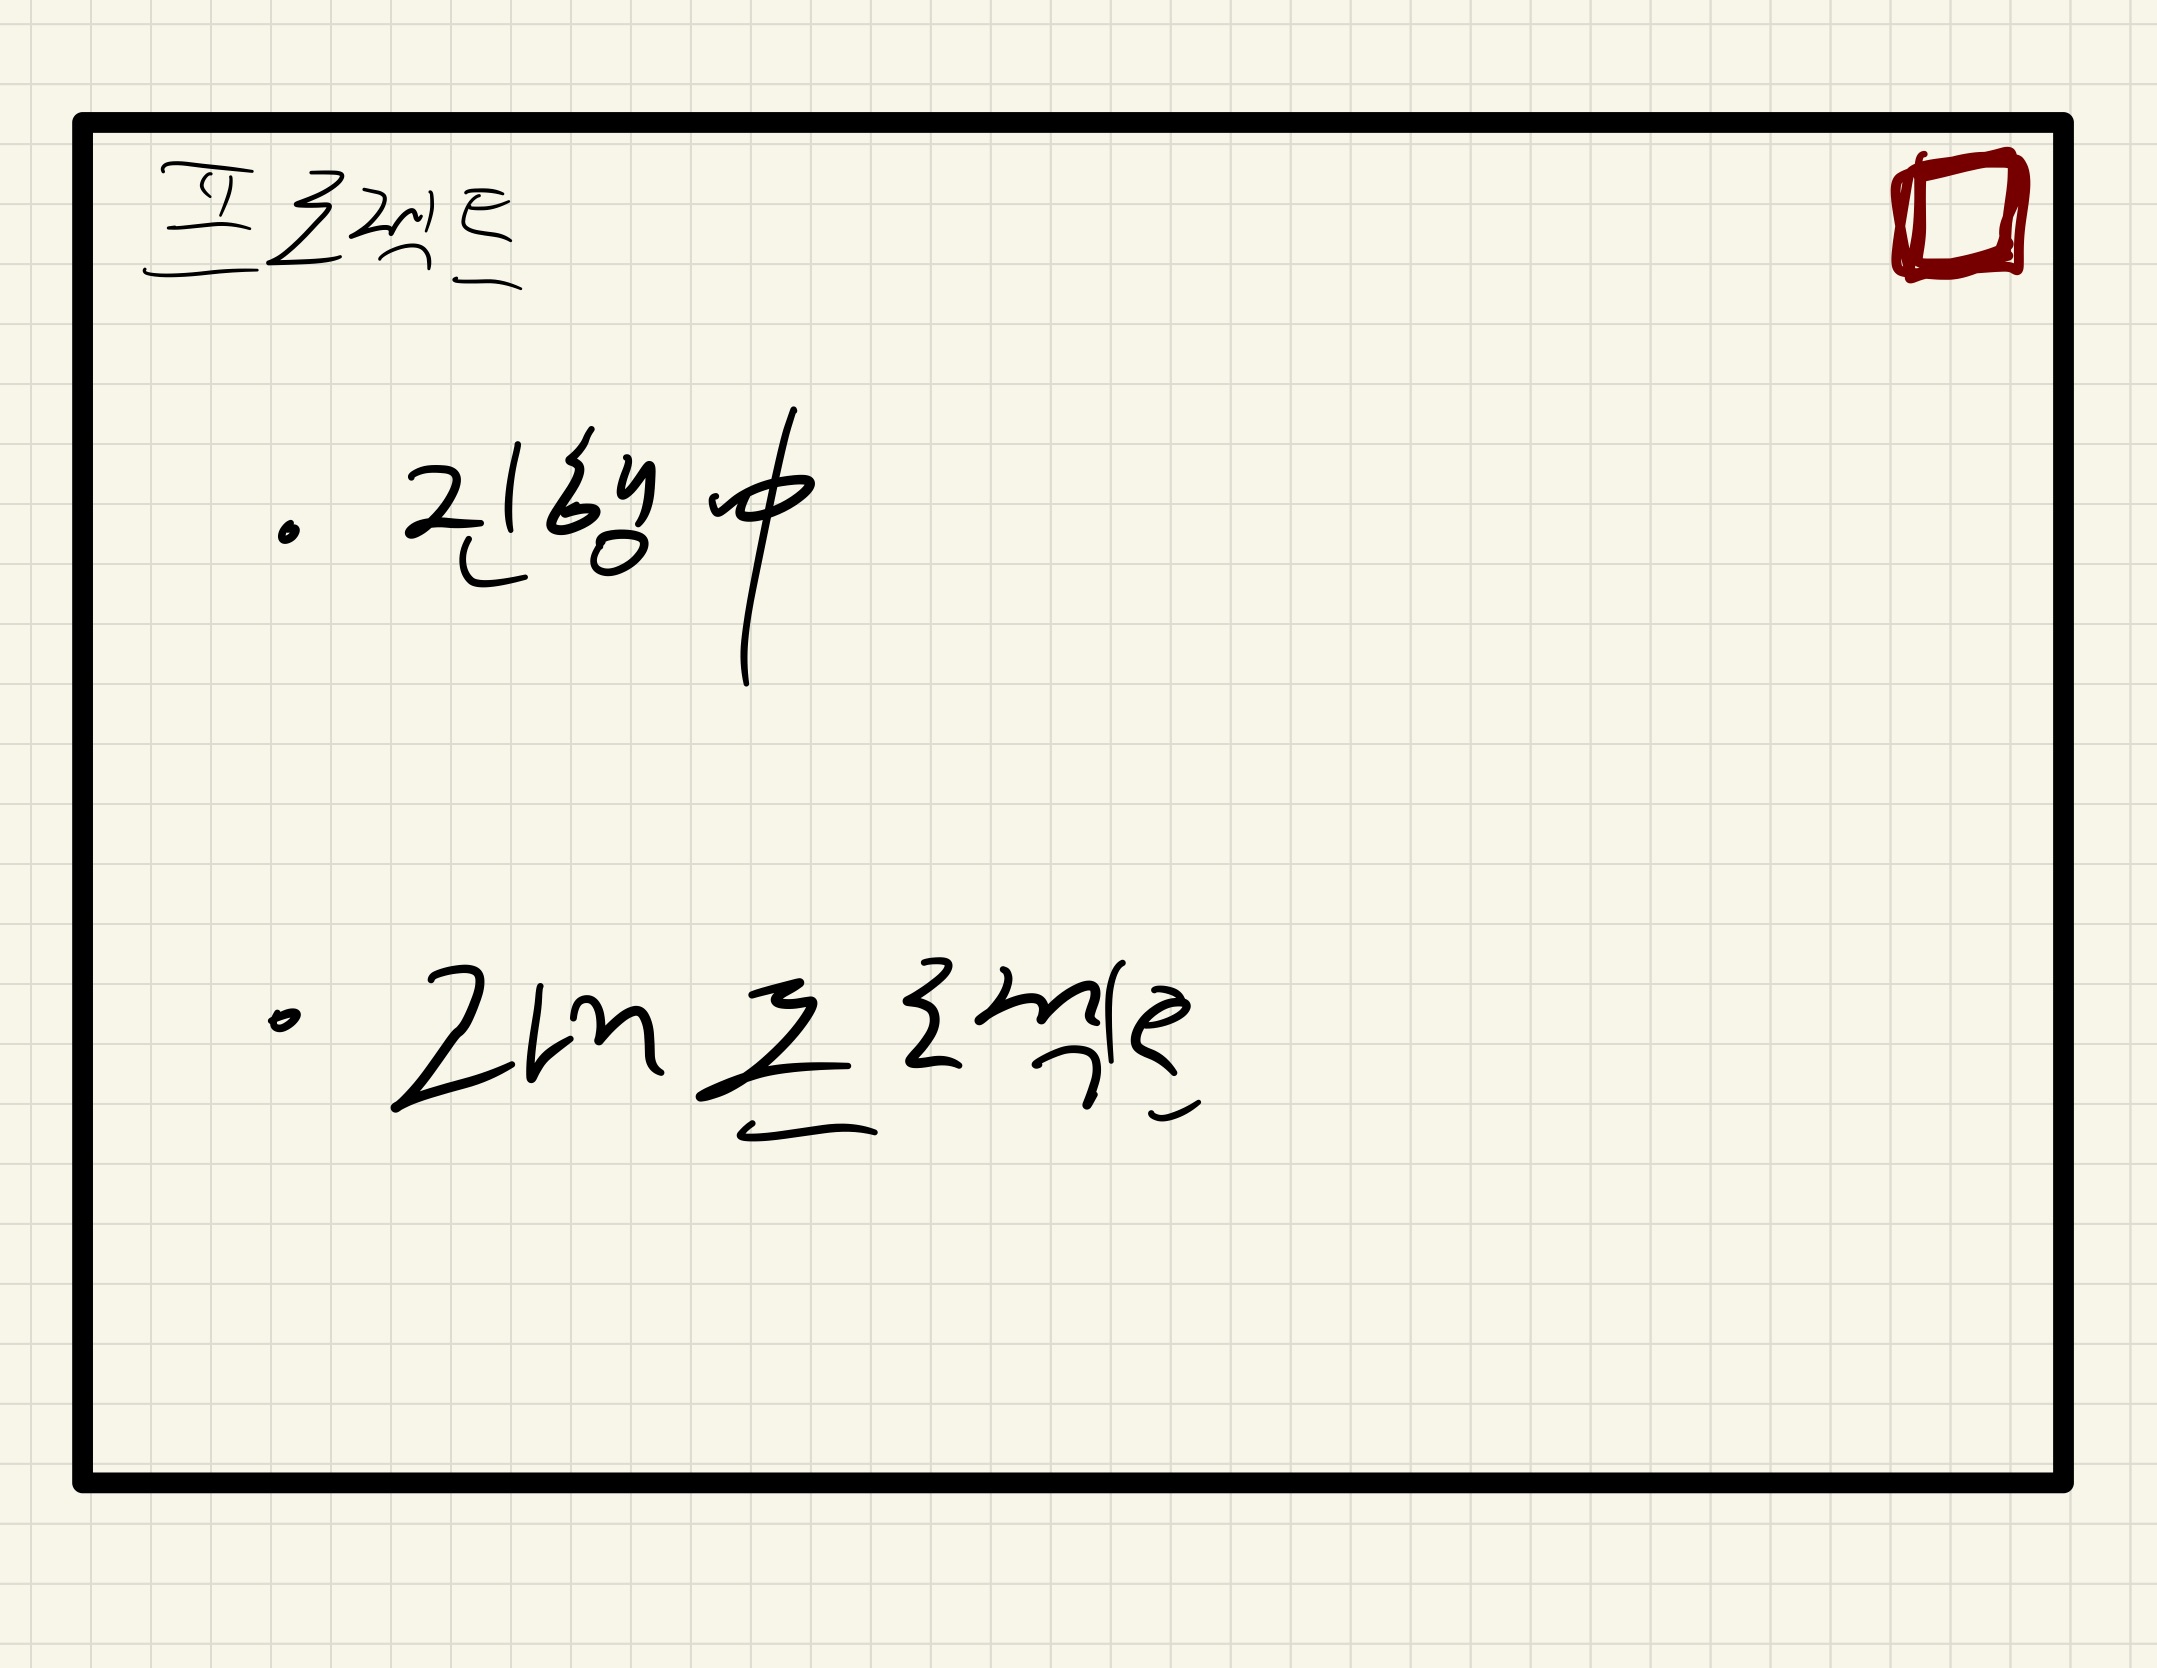 프로젝트
진행中
프로젝트